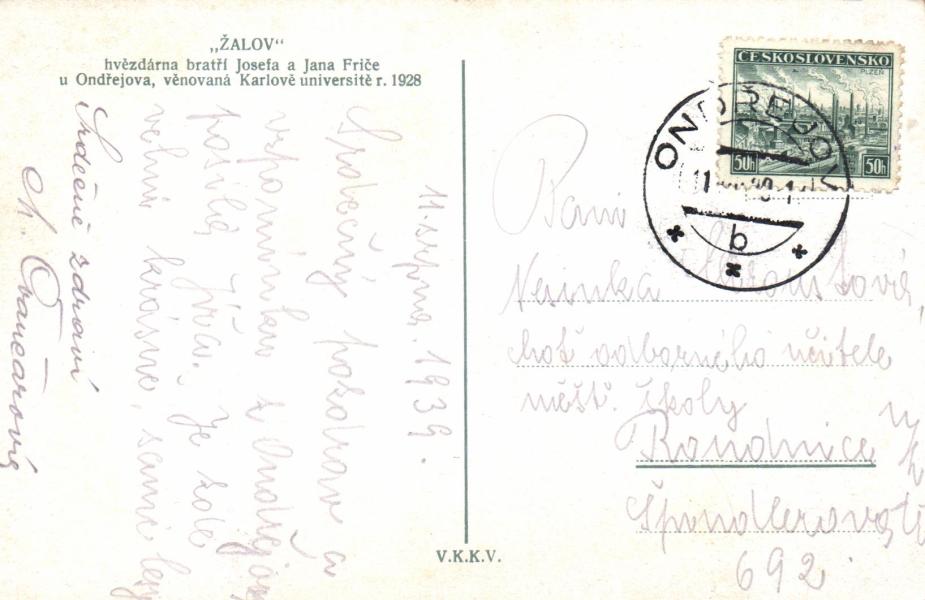 „ŽALOV“
hvězdárna bratří Josefa a Jana Friče
u Ondřejova, věnovaná Karlově universitě r. 1928
11. srpna. 1939.
Srdečný pozdrav a
vzpomínku z Ondřejova
posílá Jřca. Je zde
velmi krásně, samé lesy
Srdečné zdraví
M. Ovančarová
V.K.K.V.
ČESKOSLOVENSKO
PLZEŇ
50h 50h
ONDŘEJOV
b
Paní
choť odborného učitele
měšt. školy
Roudnice
Špindlerova tř.
692.